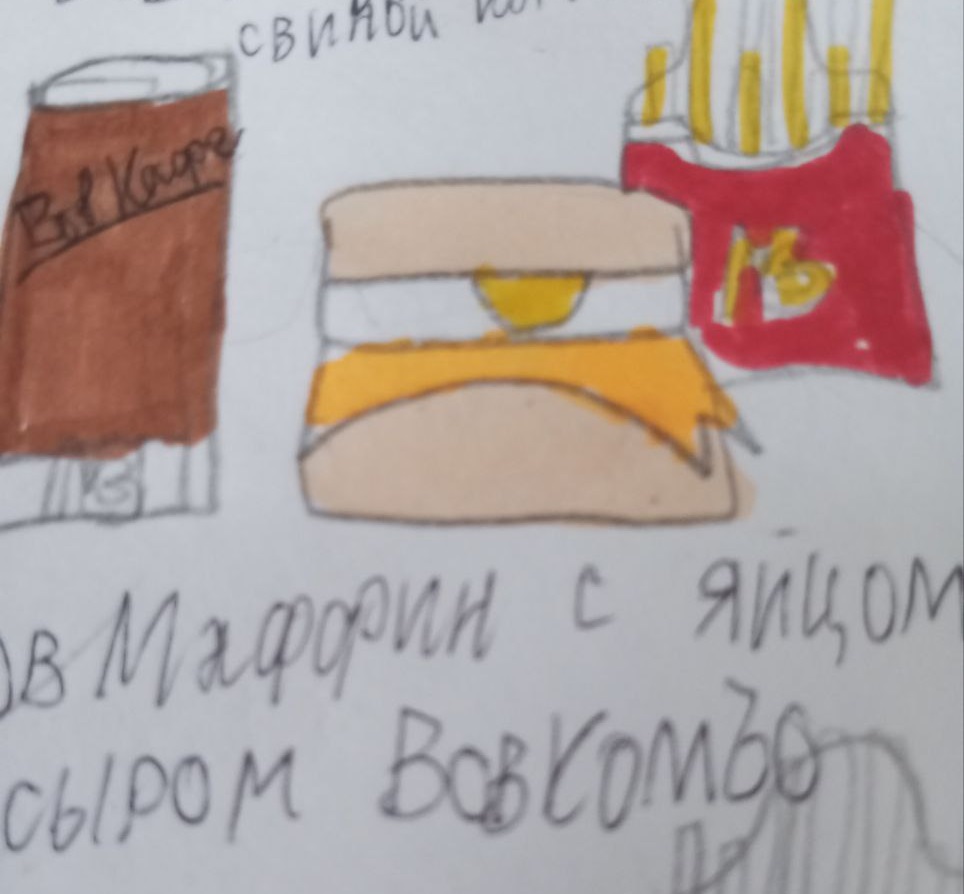 свиной
Вов Кафе
МВ
ов Маффин с яйцом
сыром ВовКомбо